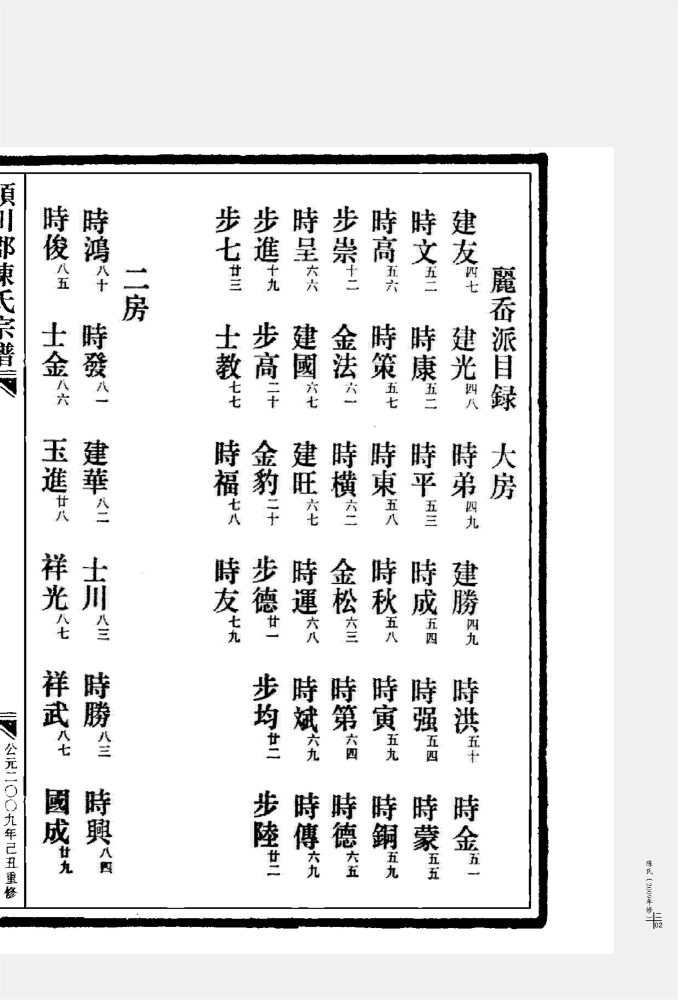 麗岙派目録 大房
建友四七 建光四八 時弟四九 建勝四九 時洪五十 時金五一
時文五二 時康五二 時平五三 時成五四 時强五四 時蒙五五
時高五六 時策五七 時東五八 時秋五八 時寅五九 時銅五九
步崇十二 金法六一 時横六二 金松六三 時第六四 時德六五
時呈六六 建國六七 建旺六七 時運六八 時斌六九 時傳六九
步進十九 步高二十 金豹二十 步德廿一 步均廿二 步陸廿二
步七廿三 士教七七 時福七八 時友七九
二房
時鴻八十 時發八一 建華八二 士川八三 時勝八三 時興八四
時俊八五 士金八六 玉進廿八 祥光八七 祥武八七 國成廿九
頴川郡陳氏宗譜
公元二〇〇九年己丑重修
陈氏(2009年修)二
二02